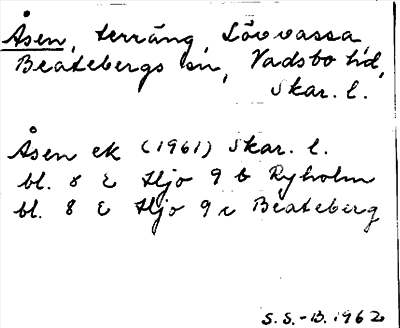 Åsen, terräng, Lövvassa
Beatebergs sn, Vadsbo hd,
Skar. l.
Åsen ek (1961) Skar. l.
bl. 8 E Hjo 9 b Ryholm
bl. 8 E Hjo 9 c Beateberg
S.S.-B. 1962